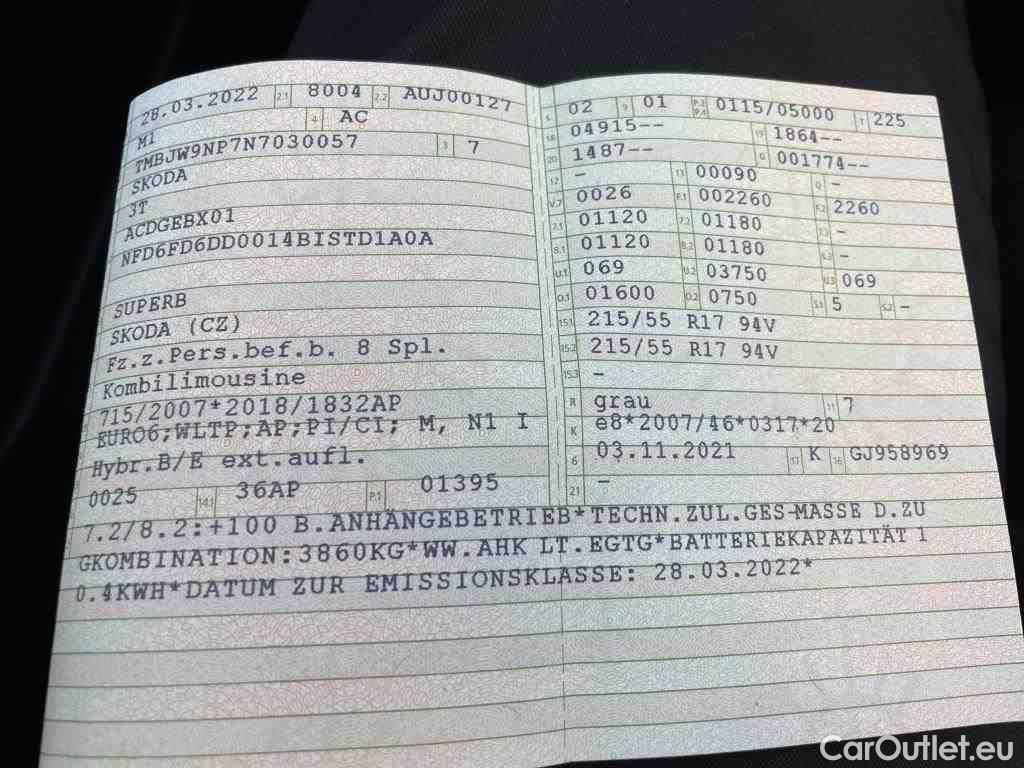 28.03.2022 2.1 8004 2.2 AUJ00127
M1 4 AC
TMBJW9NP7N7030057 3 7
SKODA
3T
ACDGEBX01
NFD6FD6DD0014BISTD1A0A
SUPERB
SKODA (CZ)
Fz.z.Pers.bef.b. 8 Spl.
Kombilimousine
715/2007*2018/1832AP
EURO6;WLTP;AP;PI/CI; M, N1 I
Hybr.B/E ext.aufl.
0025 14.1 36AP P.1 01395
L 02 9 01 P.2 P.4 0115/05000 T 225
18 04915-- 19 1864--
20 1487-- G 001774--
12 - 13 00090 Q -
V.7 0026 F.1 002260 F.2 2260
7.1 01120 7.2 01180 7.3 -
8.1 01120 8.2 01180 8.3 -
U.1 069 U.2 03750 U.3 069
O.1 01600 O.2 0750 S.1 5 S.2 -
15.1 215/55 R17 94V
15.2 215/55 R17 94V
15.3 -
R grau 11 7
K e8*2007/46*0317*20
6 03.11.2021 17 K 16 GJ958969
21 -
7.2/8.2:+100 B.ANHÄNGEBETRIEB*TECHN.ZUL.GES-MASSE D.ZU
GKOMBINATION:3860KG*WW.AHK LT.EGTG*BATTERIEKAPAZITÄT 1
0.4KWH*DATUM ZUR EMISSIONSKLASSE: 28.03.2022*
CarOutlet.eu